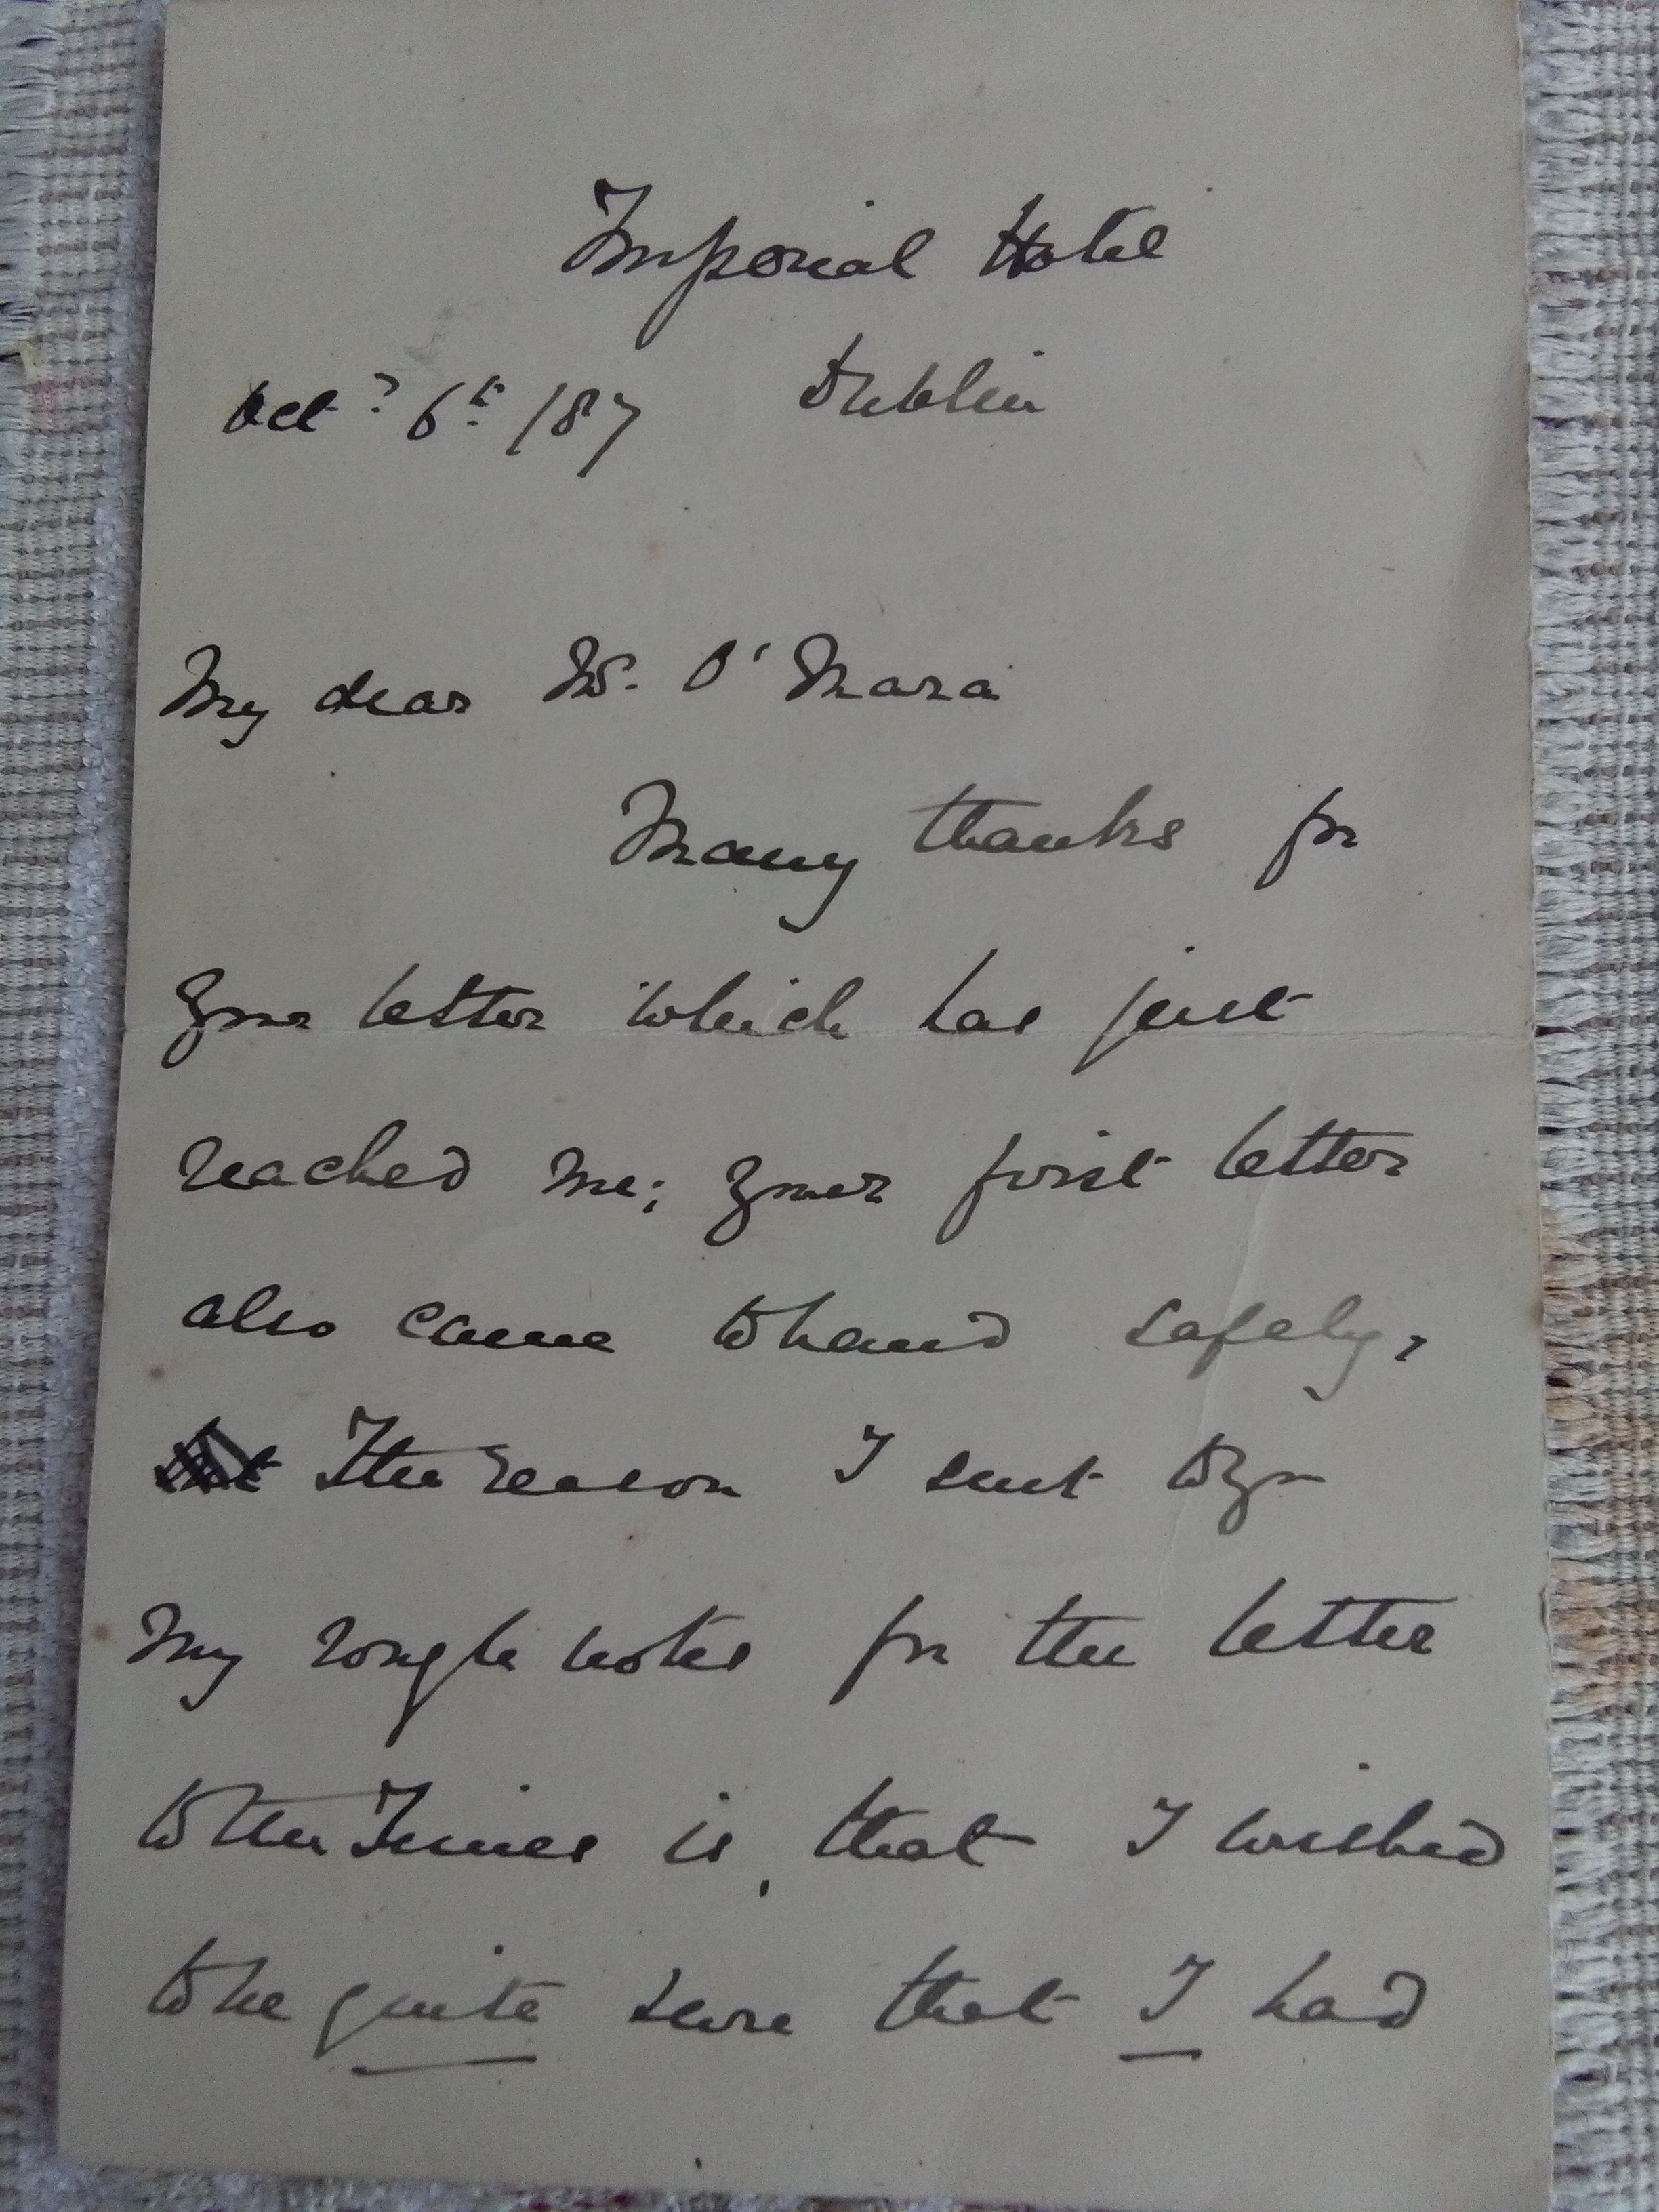 Imperial Hotel
Octr 6th /87 Dublin
My dear Mr. O'Mara
Many thanks for
your letter which has just
reached me; your first letter
also came to hand safely,
The reason I sent to you
my rough notes for the letter
to the Times is, that I wished
to be quite sure that I had